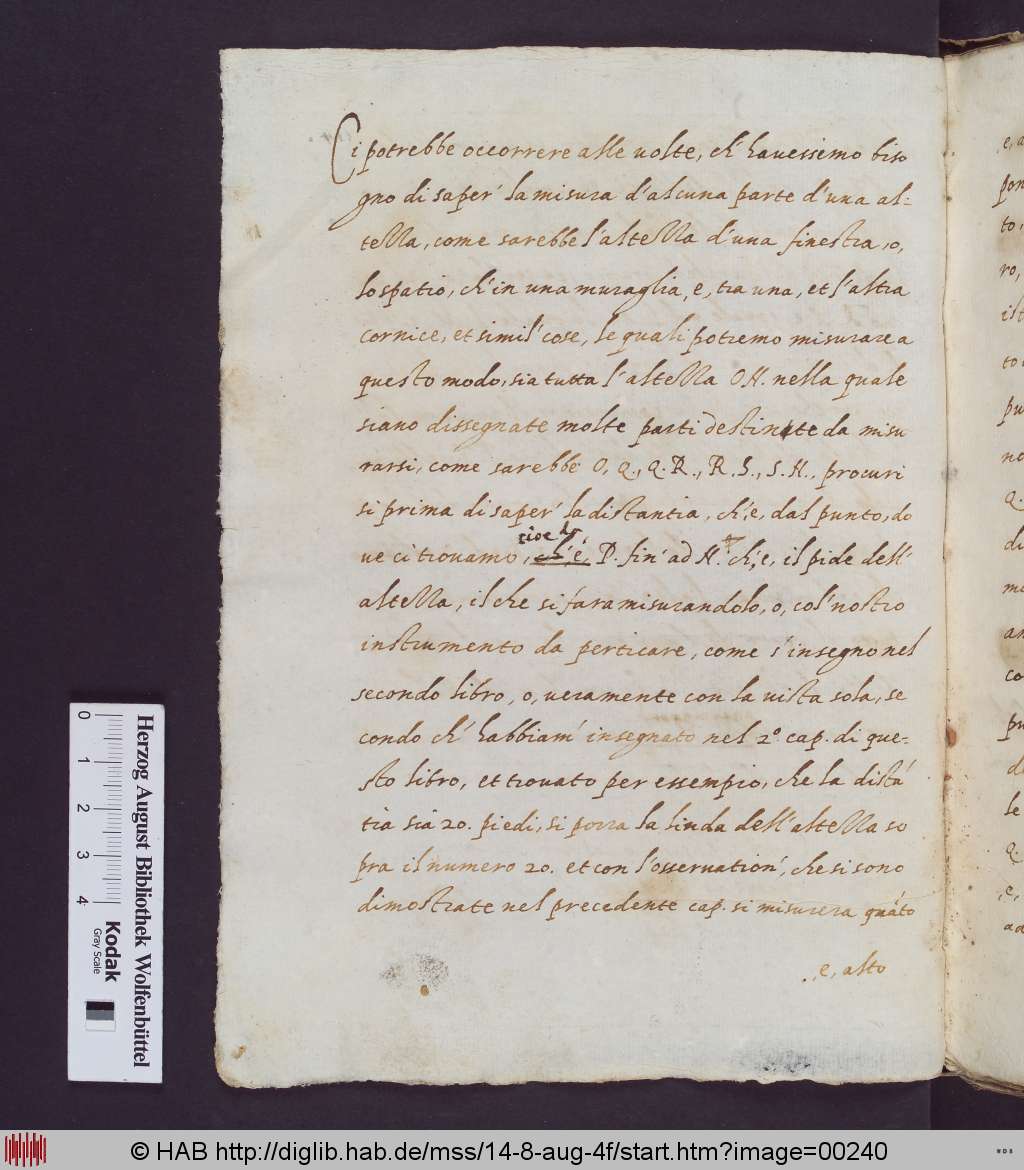 Ci potrebbe occorrere alle uolte, ch' hauessemo biso
gno di saper' la misura d'alcuna parte d'una al=
tezza, come sarebbe l'altezza d'una finestra, o,
lo spatio, ch'in una muraglia, e, tra una, et l'altra
cornice, et simil' cose, le quali potremo misurare a
questo modo, sia tutta l'altezza O.H. nella quale
siano dissegnate molte parti destinate da misu
rarsi, come sarebbe O, Q., Q. R., R. S., S. H., procuri
si prima di saper' la distantia, ch'è, dal punto, do
cioe da
ue ci trouamo, ch'é, D. fin' ad H. ch'è, il pide dell'
altezza, il che si fara misurandolo, o, col' nostro
instrumento da perticare, come s'insegno nel
secondo libro, o, ueramente con la uista sola, se
condo ch' habbiam' insegnato nel 2º. cap. di que=
sto libro, et trouato per essempio, che la distá
tia sia 20. piedi, si porra la linda dell'altezza so
pra il numero 20. et con l'osseruation', che si sono
dimostrate nel precedente cap. si misurera quáto
e, alto
e, a
pon
to,
ro,
ist
to
pu
no
Q.
di
me
an
co
pu
d
le
Q.
e,
ad
Herzog August Bibliothek Wolfenbüttel
Kodak
Gray Scale
0
1
2
3
4
© HAB http://diglib.hab.de/mss/14-8-aug-4f/start.htm?image=00240